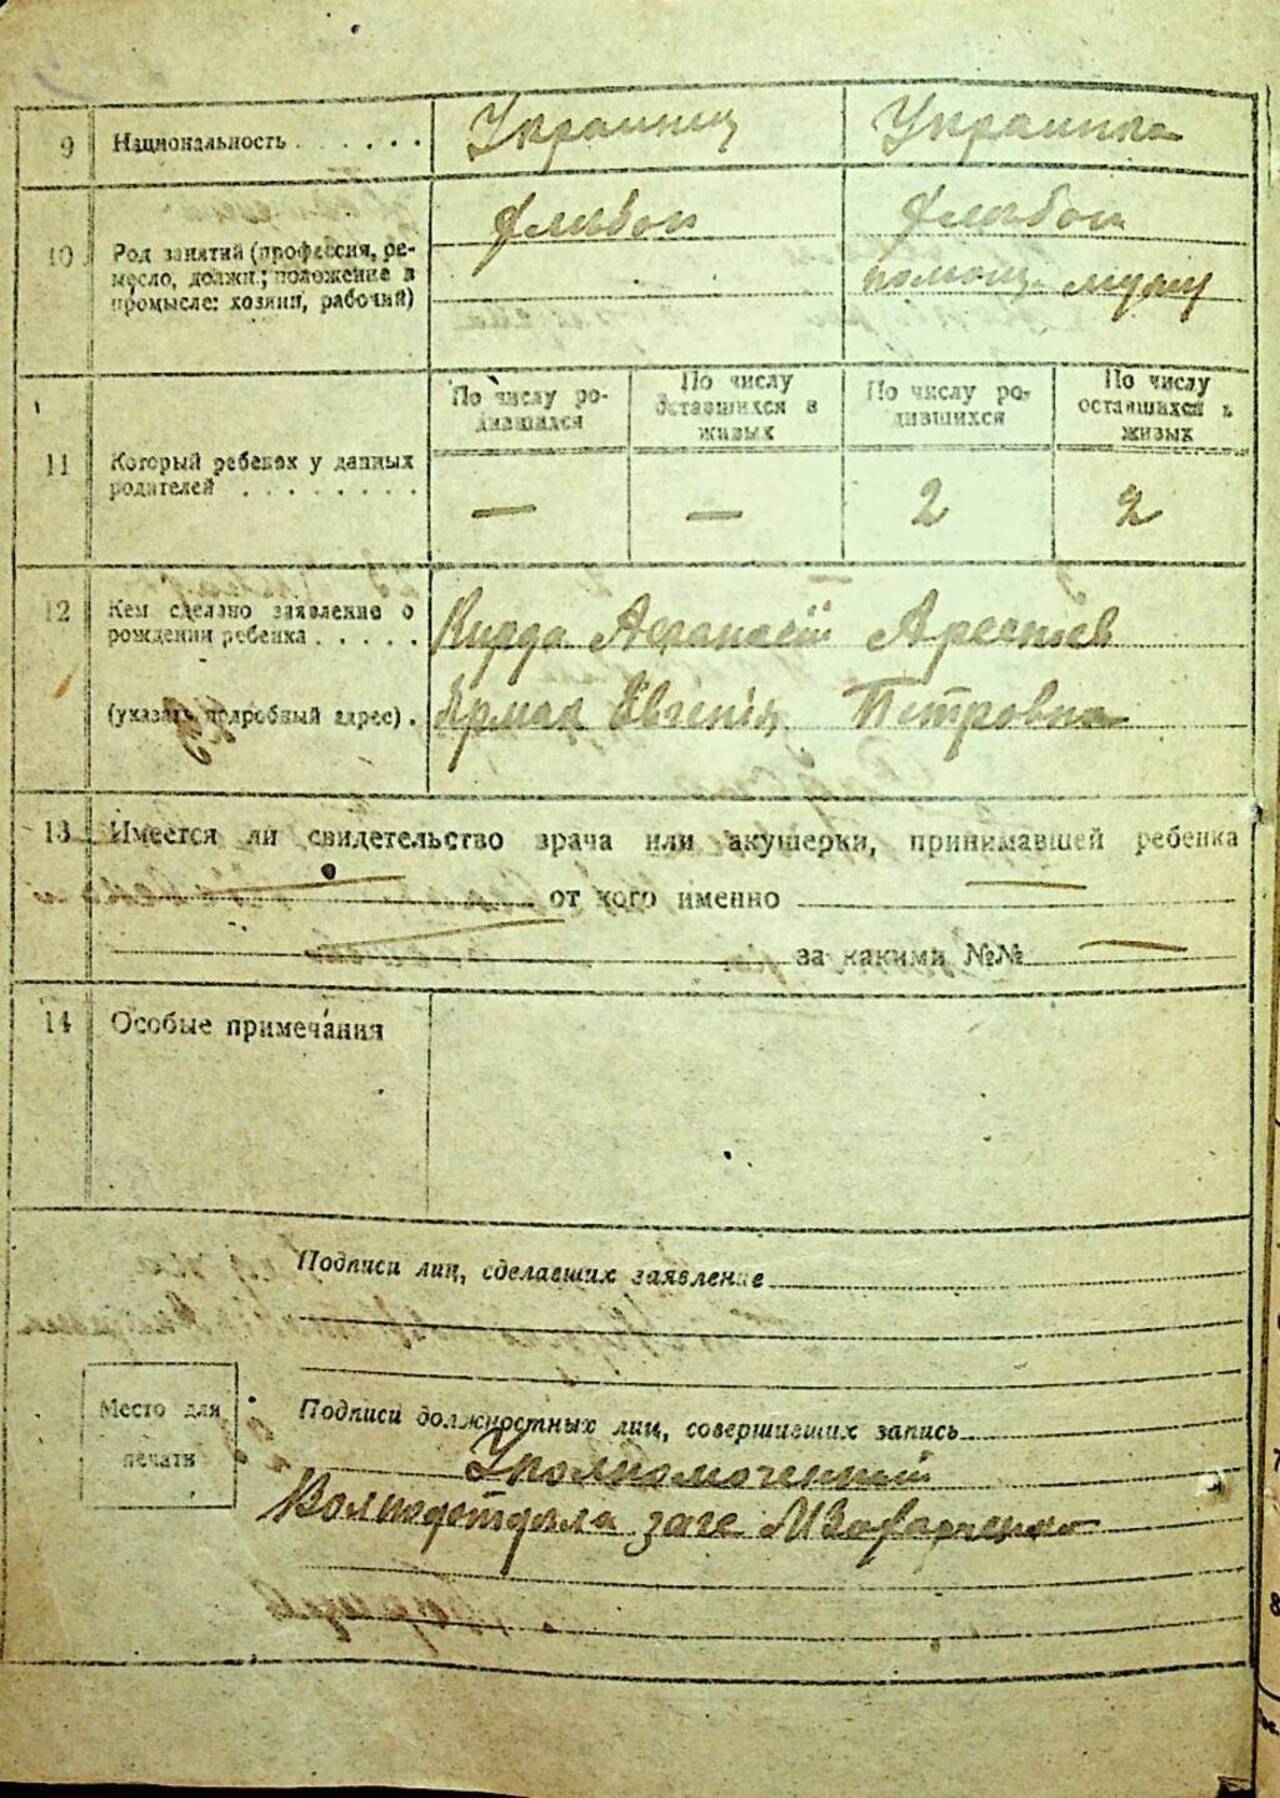 9 Национальность Украинец Украинка
10 Род занятий (профессия, ре-
месло, должн.; положение в
промысле: хозяин, рабочий)
хлебоп хлебоп
помощ. мужу
По числу ро-
дившихся
По числу
оставшихся в
живых
По числу ро-
дившихся
По числу
оставшихся в
живых
11 Который ребенок у данных
родителей
— — 2 2
12 Кем сделано заявление о
рождении ребенка
(указать подробный адрес).
Кирда Афанасий
Ярмак Евгения Петровна
13 Имеется ли свидетельство врача или акушерки, принимавшей ребенка
от кого именно
за какими №№
14 Особые примечания
Подписи лиц, сделавших заявление
Место для
печати
Подписи должностных лиц, совершивших запись
Уполномоченный
загс